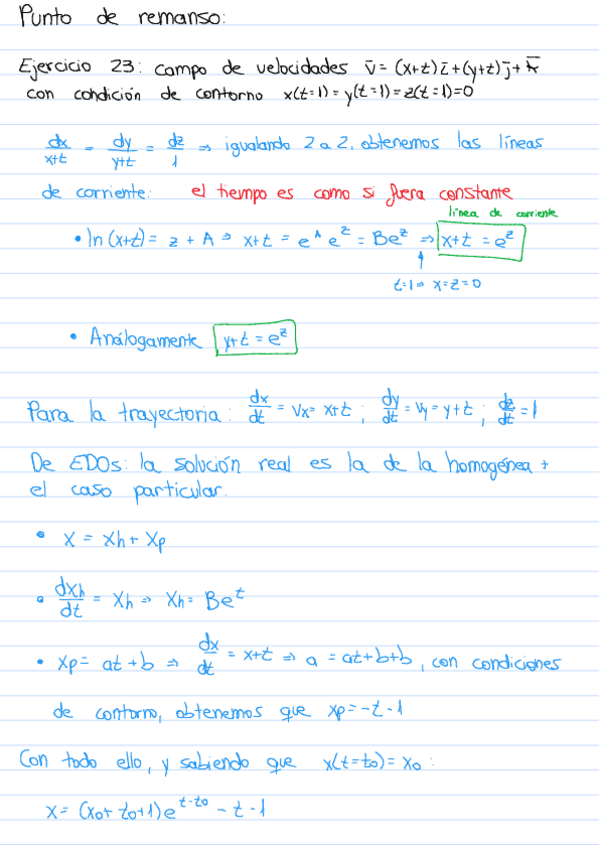 Punto de remanso:
Ejercicio 23: campo de velocidades v̄ = (x+t)ī+(y+t)j̄+k̄
con condición de contorno x(t=1)=y(t=1)=z(t=1)=0
dx/x+t = dy/y+t = dz/1 ⇒ igualando 2 a 2, obtenemos las líneas
de corriente: el tiempo es como si fuera constante
línea de corriente
• ln(x+t) = z + A ⇒ x+t = e^A e^z = Be^z ⇒ x+t = e^z
t=1 ⇒ x=z=0
• Análogamente y+t = e^z
Para la trayectoria: dx/dt = Vx = x+t ; dy/dt = Vy = y+t ; dz/dt = 1
De EDOs: la solución real es la de la homogénea +
el caso particular.
• X = Xh + Xp
• dXh/dt = Xh ⇒ Xh = Be^t
• Xp = at + b ⇒ dx/dt = x+t ⇒ a = at+b+b, con condiciones
de contorno, obtenemos que xp = -t-1
Con todo ello, y sabiendo que x(t=to) = Xo:
x = (xo+to+1)e^t-to - t - 1